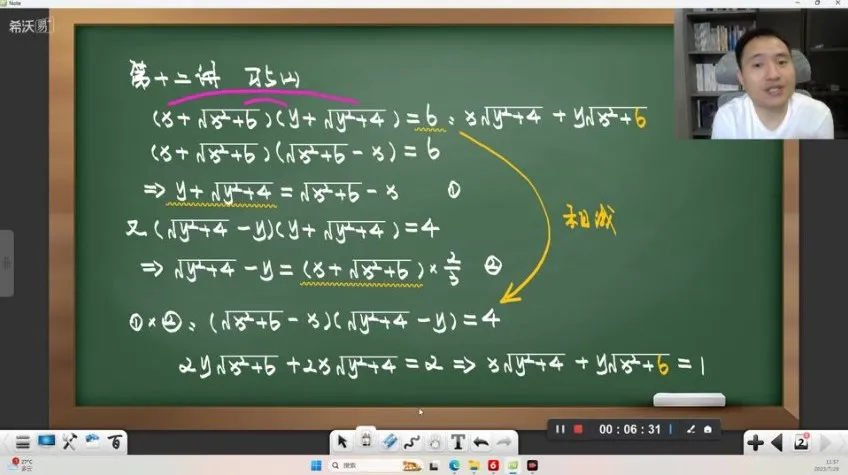 Note
希沃易+
第十二讲 巧如
(x+√x²+6)(y+√y²+4)=6, x√y²+4 + y√x²+6
(x+√x²+6)(√x²+6-x)=6
⇒ y+√y²+4=√x²+6-x ①
又(√y²+4-y)(y+√y²+4)=4
⇒ √y²+4-y=(x+√x²+6)×2/3 ②
相减
①×②: (√x²+6-x)(√y²+4-y)=4
2y√x²+6+2x√y²+4=2 ⇒ x√y²+4+y√x²+6=1
00:06:31
百
T
2
27°C
搜索
11:57